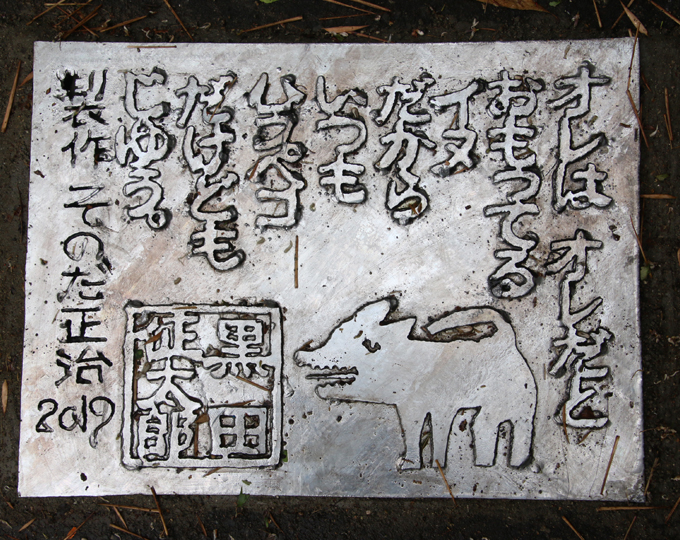 オレは オレだと
おもってる
イヌ
だから
いつも
ハラペコ
だけども
じゆう。
黒田
征太郎
製作 そのだ正治
2019